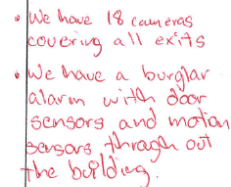 • We have 18 cameras
covering all exits
• We have a burglar
alarm with door
sensors and motion
sensors through out
the building.